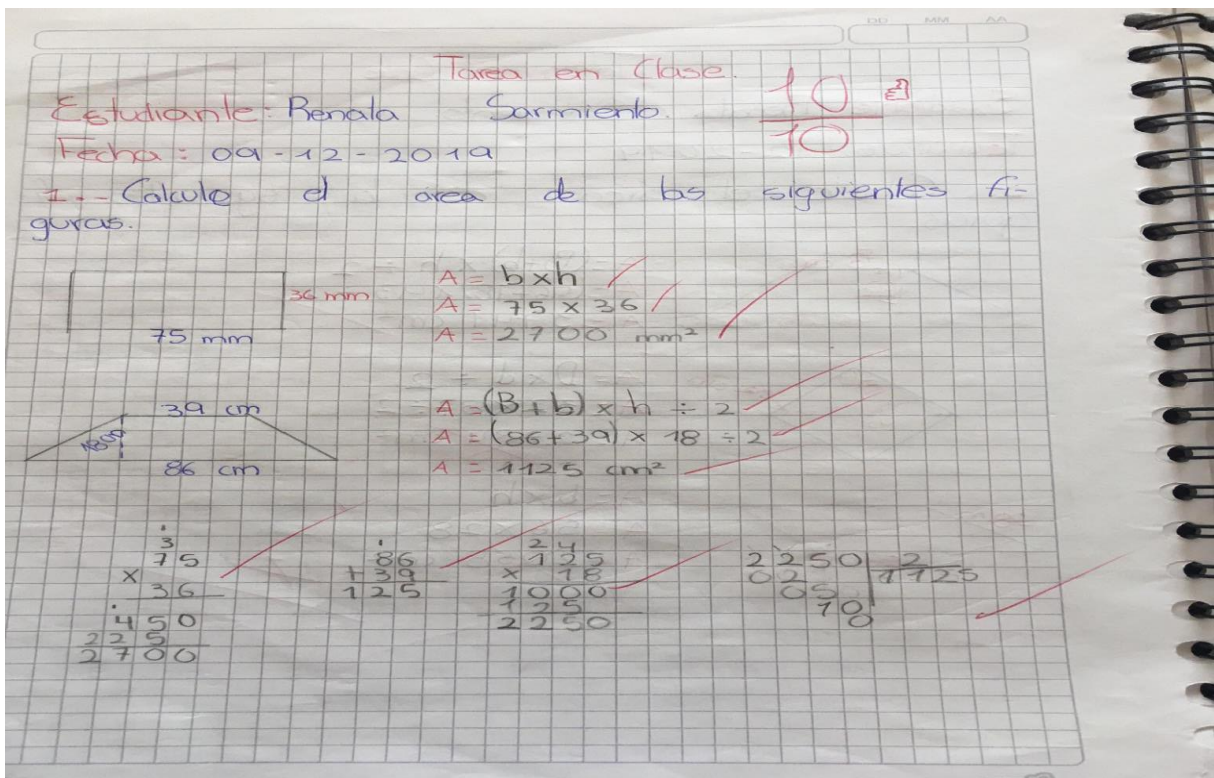 DD MM AA
Tarea en Clase.
10
10
Estudiante: Renata Sarmiento.
Fecha: 09-12-2019
1.- Calcule el area de las siguientes fi-
guras.
36 mm
75 mm
A = b x h
A = 75 x 36
A = 2700 mm²
39 cm
86 cm
A = (B + b) x h ÷ 2
A = (86 + 39) x 18 ÷ 2
A = 1125 cm²
3
75
x
36
450
225
2700
86
+ 39
125
2 4
125
x 18
1000
125
2250
2250 2
02 1125
05
10
0